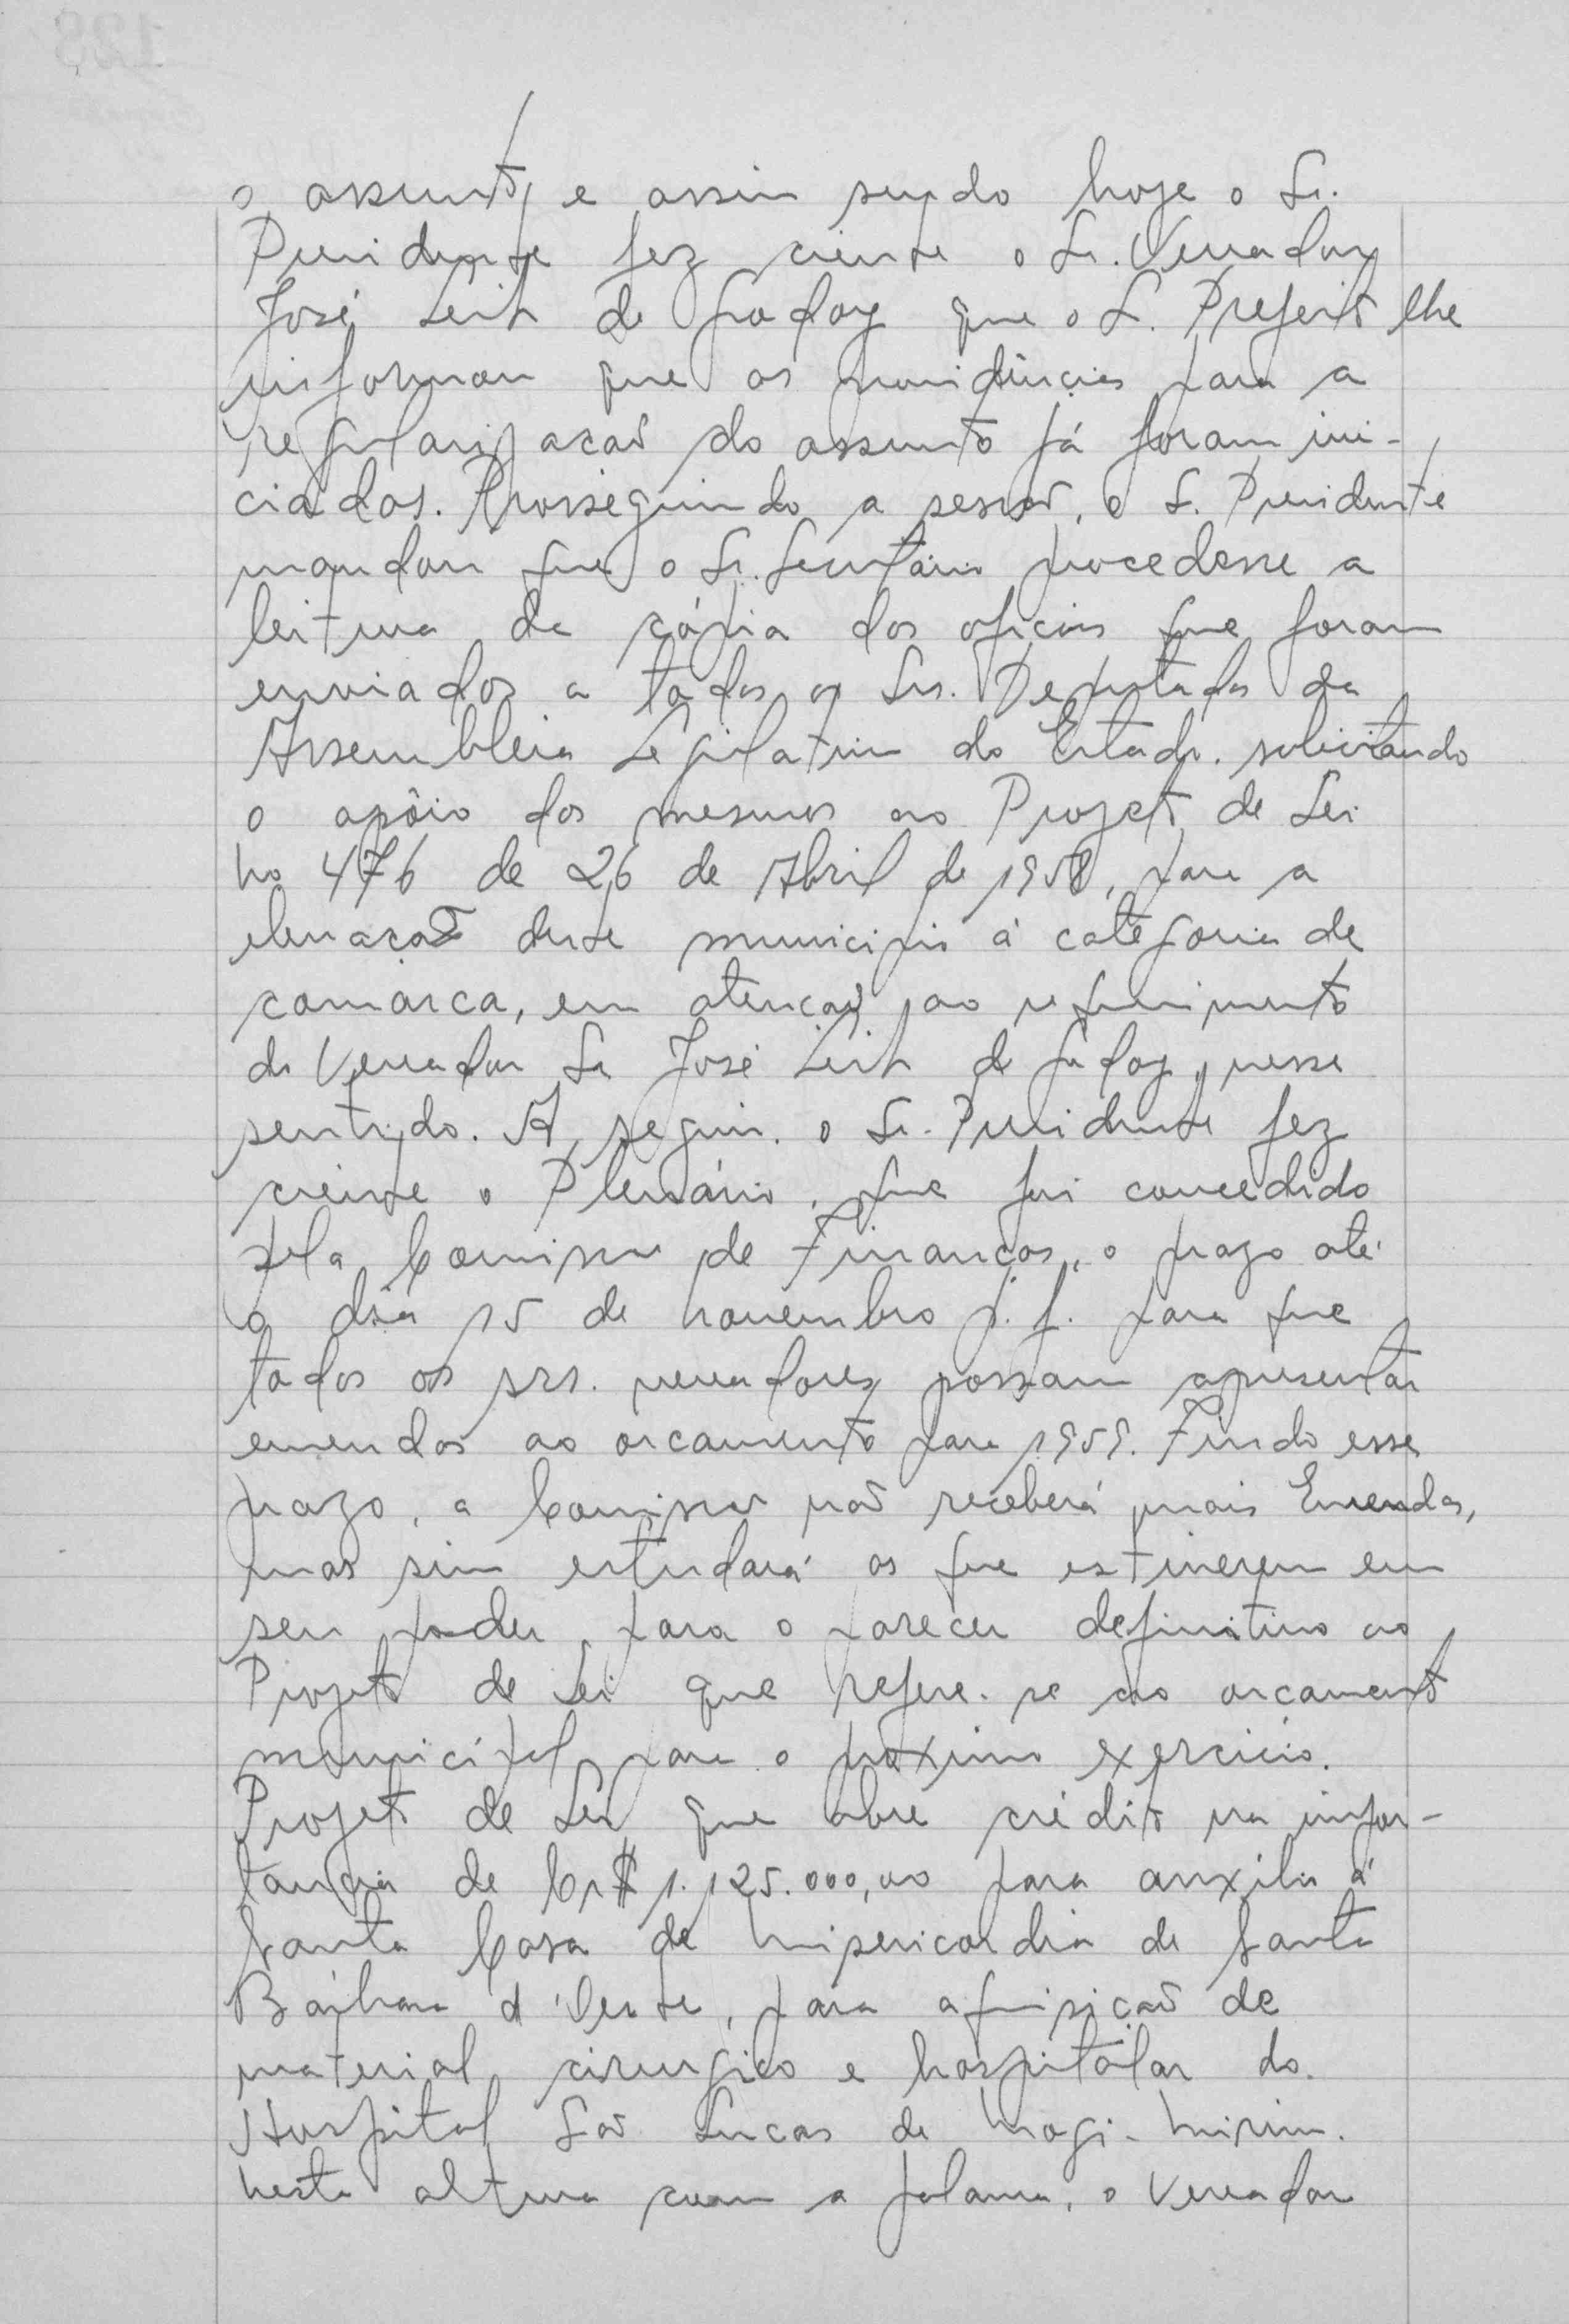 o assunto, e assim sendo hoje o Sr.
Presidente fez ciente o Sr. Vereador
José Leite de Godoy que o S. Prefeito lhe
informou que as providências para a
regularização do assunto já foram ini-
ciadas. Prosseguindo a sessão, o S. Presidente
mandou que o Sr. Secretário procedesse a
leitura da cópia dos oficios que foram
enviados a todos os Srs. Deputados da
Assembleia Legislativa do Estado. solicitando
o apôio dos mesmos ao Projeto de Lei
no 476 de 26 de Abril de 1958, para a
elevação deste municipio á categoria de
comarca, em atenção ao requerimento
do Vereador Sr José Leite de Godoy, nesse
sentido. A seguir. o Sr. Presidente fez
ciente o Plenário, que foi concedido
pela Comissão de Finanças, o prazo até
o dia 15 de novembro p.f. para que
todos os srs. vereadores possam apresentar
emendas ao orçamento para 1959. Findo esse
prazo, a Comissão não receberá mais Emendas,
mas sim estudará as que estiverem em
seu poder, para o parecer definitivo ao
Projeto de Lei que refere-se ao orçamento
municípal para o próximo exercicio.
Projeto de Lei que abre crédito na impor-
tancia de Cr$ 1.125.000,00 para auxilio á
Santa Casa de Misericordia de Santa
Bárbara d'Oeste, para aquisição de
material cirurgico e hospitalar do.
Hospital São Lucas de Mogi-Mirim.
Nesta altura com a palavra, o Vereador